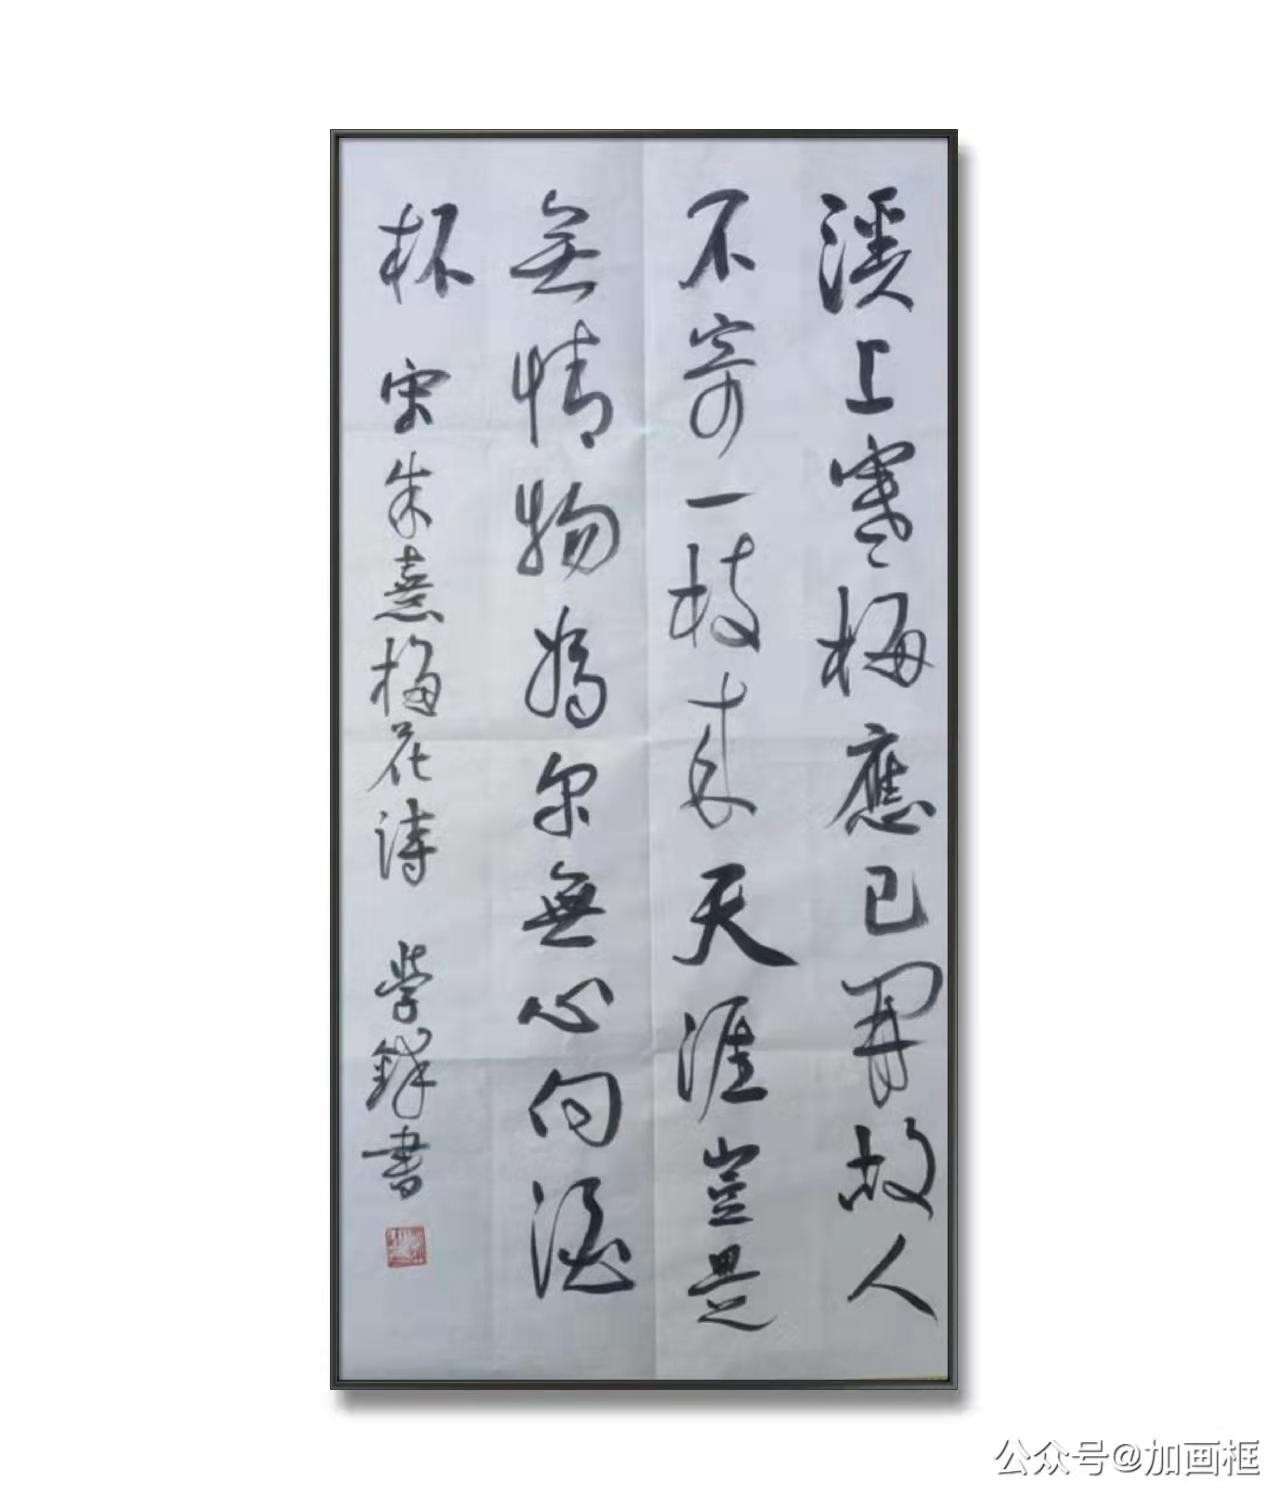 溪上寒梅應已開故人
不寄一枝来天涯豈是
無情物爲尔無心向酒
杯 宋朱熹梅花诗 学鋒書
公众号@加画框